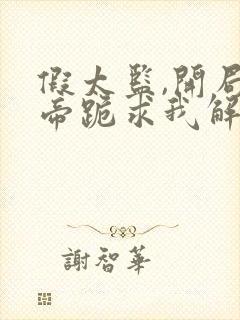 假太監,開局
帝跪求我解
謝智華